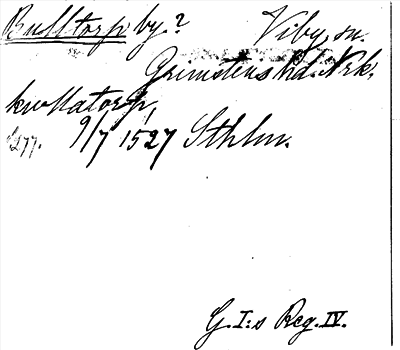 Bulltorp by? Viby sn.
Grimstens hd. Nrk.
kwllatorp,
277. 9/7 1527 Sthlm.
G.I:s Reg. IV.